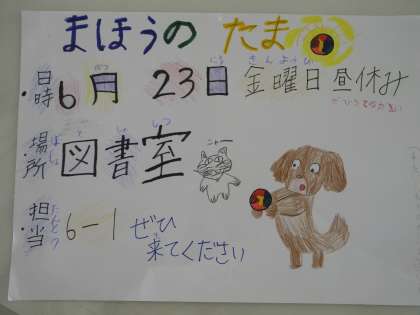 まほうの たま
・日時 6月 23日 金曜日 昼休み
・場所 図書室
ニャー
・担当 6-1 ぜひ
来てください